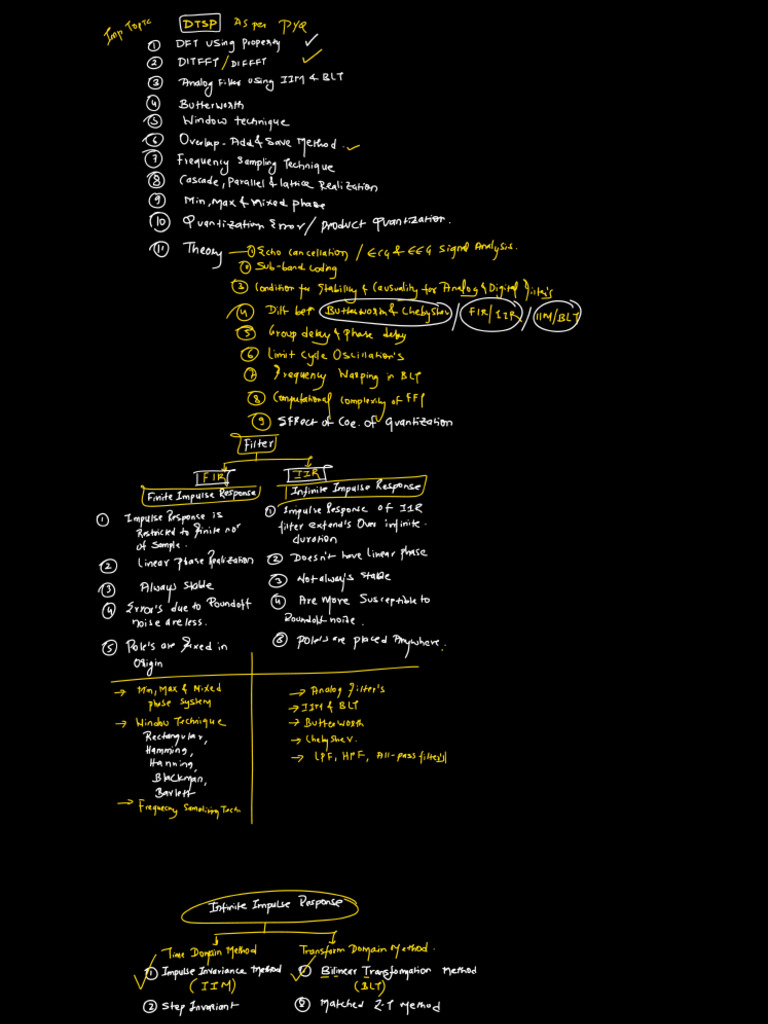 Imp Topic DTSP As per PYQ
① DFT using Property ✓
② DITFFT / DIFFFT ✓
③ Analog Filter using IIM & BLT
④ Butterworth
⑤ Window technique
⑥ Overlap-Add & Save Method. ✓
⑦ Frequency Sampling Technique
⑧ Cascade, Parallel & lattice Realization
⑨ Min, Max & Mixed phase
⑩ Quantization Error / product Quantization.
⑪ Theory
① Echo cancellation / ECG & EEG Signal Analysis.
② Sub-band coding
③ Condition for Stability & Causuality for Analog & Digital filter's
④ Diff bet Butterworth & Chebyshev / FIR / IIR / IIM/BLT
⑤ Group delay & Phase delay
⑥ Limit Cycle Oscillation's
⑦ Frequency Warping in BLT
⑧ Computational complexity of FFT
⑨ Effect of Coe. of Quantization
Filter
FIR
Finite Impulse Response
① Impulse Response is
Restricted to finite no°
of Sample.
② Linear Phase Realization
③ Always Stable
④ Error's due to Roundoff
noise are less.
⑤ Pole's are fixed in
Origin
IIR
Infinite Impulse Response
① Impulse Response of IIR
filter extend's Over infinite.
duration
② Doesn't have Linear phase
③ Not always stable
④ Are more Susceptible to
Roundoff noise.
⑤ pole's are placed Anywhere.
→ Min, Max & Mixed
phase System
→ Window Technique
Rectangular,
Hamming,
Hanning,
Blackman,
Barlett
→ Frequency Sampling Tech
→ Analog filter's
→ IIM & BLT
→ Butterworth
→ Chebyshev.
→ LPF, HPF, All-pass filter's
Infinite Impulse Response
Time Domain Method
① Impulse Invariance Method
(IIM)
② Step Invariant
Transform Domain Method.
① Bilinear Transfomation Method
(BLT)
② Matched Z-T Method